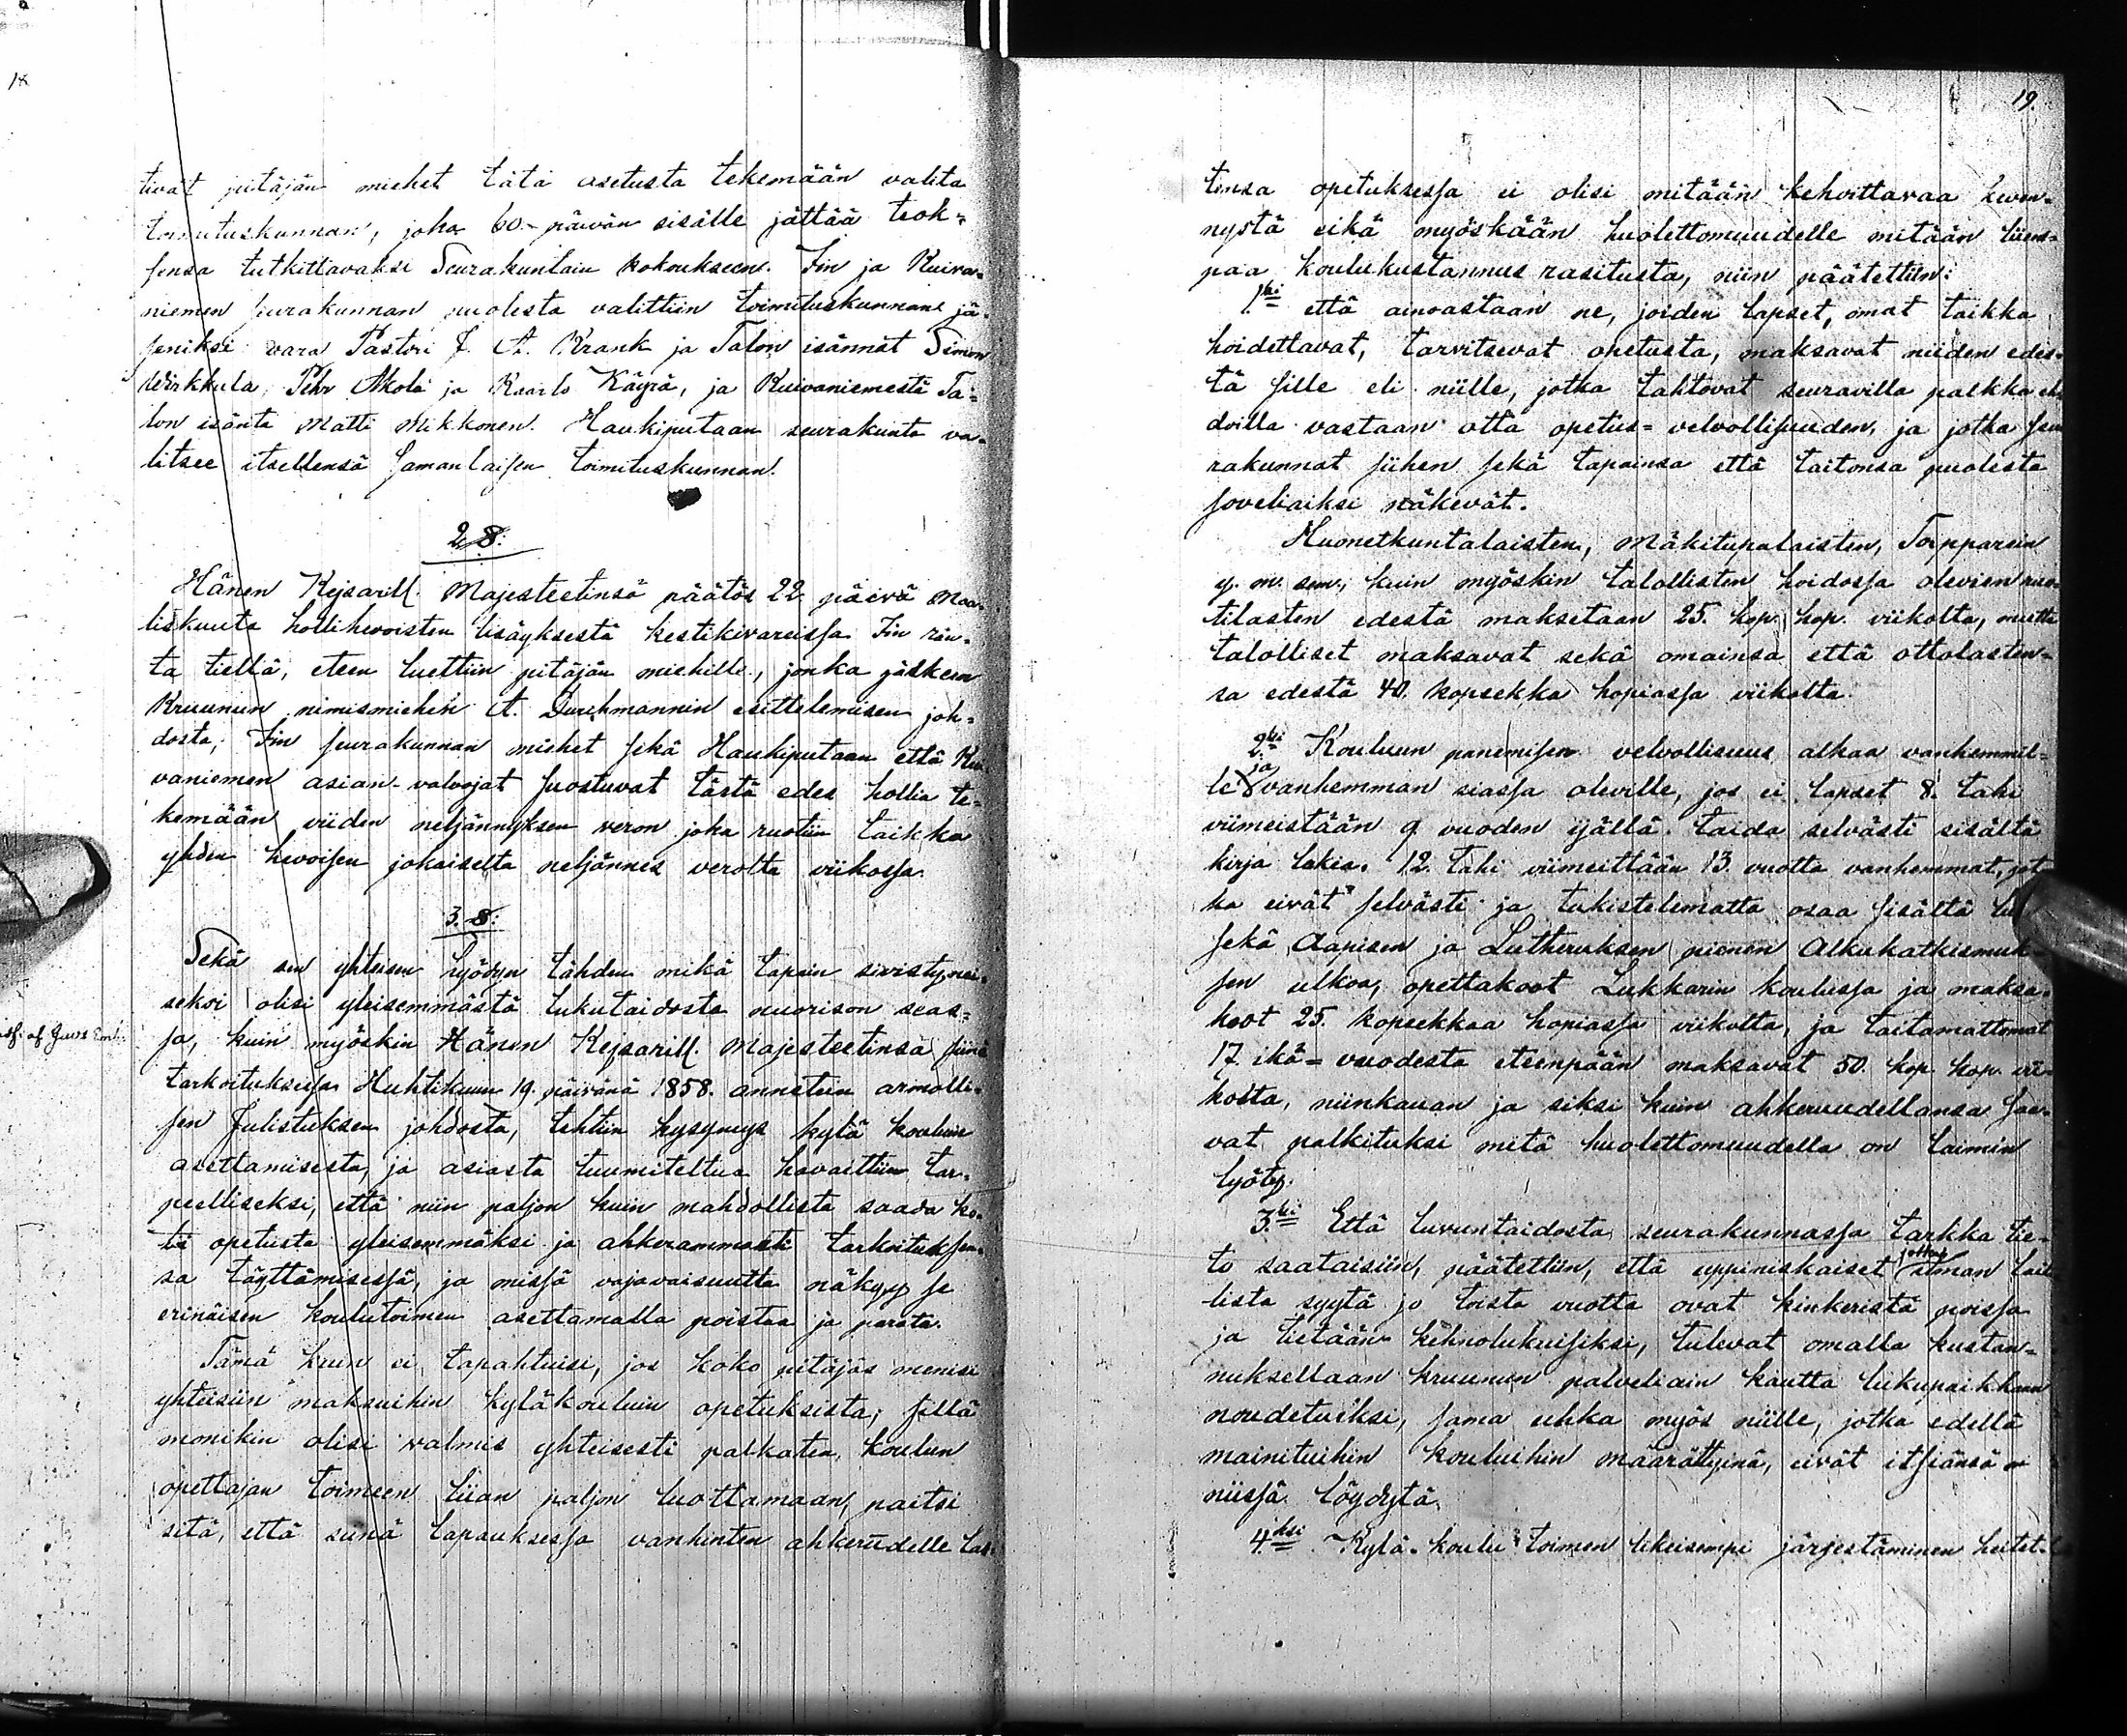 18
tivat pitäjän miehet tätä asetusta tekemään valita
toimituskunnan, joka 60.- päivän sisälle jättää teok=
sensa tutkittavaksi Seurakuntain kokoukseen. Iin ja Kuiva-
niemen seurakunnan puolesta valittiin toimituskunnan jä-
seniksi vara Pastori J. A. Krank ja Talon isännät Simon
Wirkkula, Pehr Akola ja Kaarlo Käyrä, ja Kuivaniemestä Ta=
lon isäntä Matti Mikkonen. Haukiputaan seurakunta va-
litsee itsellensä samanlaisen toimituskunnan.
2 §:
Hänen Kejsarill. Majesteetinsä päätös 22 päivä Maa-
liskuuta hollihevoisten lisäyksestä kestikivareissa Iin ran-
ta tiellä, eteen luettiin pitäjän miehille, jonka jälkeen
Kruunun nimismiehen A. Durchmannin esittelemisen joh=
dosta, Iin seurakunnan miehet sekä Haukiputaan että Kui-
vaniemen asian-valvojat suostuvat tästä edes hollia te-
kemään viiden neljännyksen veron joka ruotiin taikka
yhden hevoisen jokaiselta neljännes verolta viikossa.
3. §:
Sekä sen yhteisen hyödyn tähden mikä tapain sivistymi-
seksi olisi yleisemmästä lukutaidosta nuorison seas=
sa, kuin myöskin Hänen Kejsarill. Majesteetinsa siinä
tarkoituksessa Huhtikuun 19. päivänä 1858. annetun armolli-
sen Julistuksen johdosta, tehtiin kysymys kylä kouluin
asettamisesta, ja asiasta tuumiteltua havaittiin tar-
peelliseksi, että niin paljon kuin mahdollista saada ko-
ti opetusta yleisemmäksi ja ahkerammasti tarkoituksen-
sa täyttämisessä, ja missä vajavaisuutta näkyy se
erinäisen koulutoimen asettamalla poistaa ja parata.
Tämä kuin ei tapahtuisi, jos koko pitäjäs menisi
yhteisiin maksuihin kyläkouluin opetuksista; sillä
monikin olisi valmis yhteisesti palkatun koulun
opettajan toimeen liian paljon luottamaan, paitsi
sitä, että siinä tapauksessa vanhinten ahkerudelle las-
19.
tensa opetuksessa ei olisi mitään kehoittavaa kevin-
nystä eikä myöskään huolettomuudelle mitään liiem-
paa koulukustannus rasitusta, niin päätettiin:
1.ksi että ainoastaan ne, joiden lapset, omat taikka
hoidettavat, tarvitsevat opetusta, maksavat niiden edes-
tä sille eli niille, jotka tahtovat seuravilla palkka eh-
doilla vastaan otta opetus=velvollisuuden, ja jotka seu-
rakunnat siihen sekä tapainsa että taitonsa puolesta
soveliaiksi näkevät.
Huonetkuntalaisten, Mäkitupalaisten, Torpparein
y. m. sem., kuin myöskin talollisten hoidossa olevien ruo-
tilasten edestä maksetaan 25. kop. hop. viikolta, mutta
talolliset maksavat sekä omainsa että ottolasten-
sa edestä 40. kopeekka hopiassa viikolta.
2.ksi Kouluun panemisen velvollisuus alkaa vanhemmil-
le ja vanhemman siassa oleville, jos ei lapset 8. tahi
viimeistään 9 vuoden ijällä taida selvästi sisältä
kirja lukea. 12. tahi viimeittään 13. vuotta vanhemmat, jot-
ka eivät selvästi ja takistelematta osaa sisältä
sekä Aapisen ja Lutheruksen pienen Alkukatkismuk-
sen ulkoa, opettakoot Lukkarin koulussa ja maksa-
koot 25. kopeekkaa hopiassa viikolta, ja taitamattomat
17. ikä=vuodesta eteenpään maksavat 50. kop. hop. vii-
kolta, niinkauan ja siksi kuin ahkeruudellansa saa-
vat palkituksi mitä huolettomuudella on laimin
lyöty.
3.ksi Että luvuntaidosta seurakunnassa tarkka tie-
to saataisiin, päätettiin, että uppiniskaiset jotka ilman lail-
lista syytä jo toista vuotta ovat kinkeristä poissa
ja tietään kehnolukuisiksi, tulevat omalla kustan-
nuksellaan kruunun palveliain kautta lukupaikkaan
noudetuiksi, sama uhka myös niille, jotka edellä
mainituihin kouluihin määrättyinä, eivät itsiänsä
niissä löydytä.
4.ksi Kylä-koulu toimen likeisempi järjestäminen heitet-